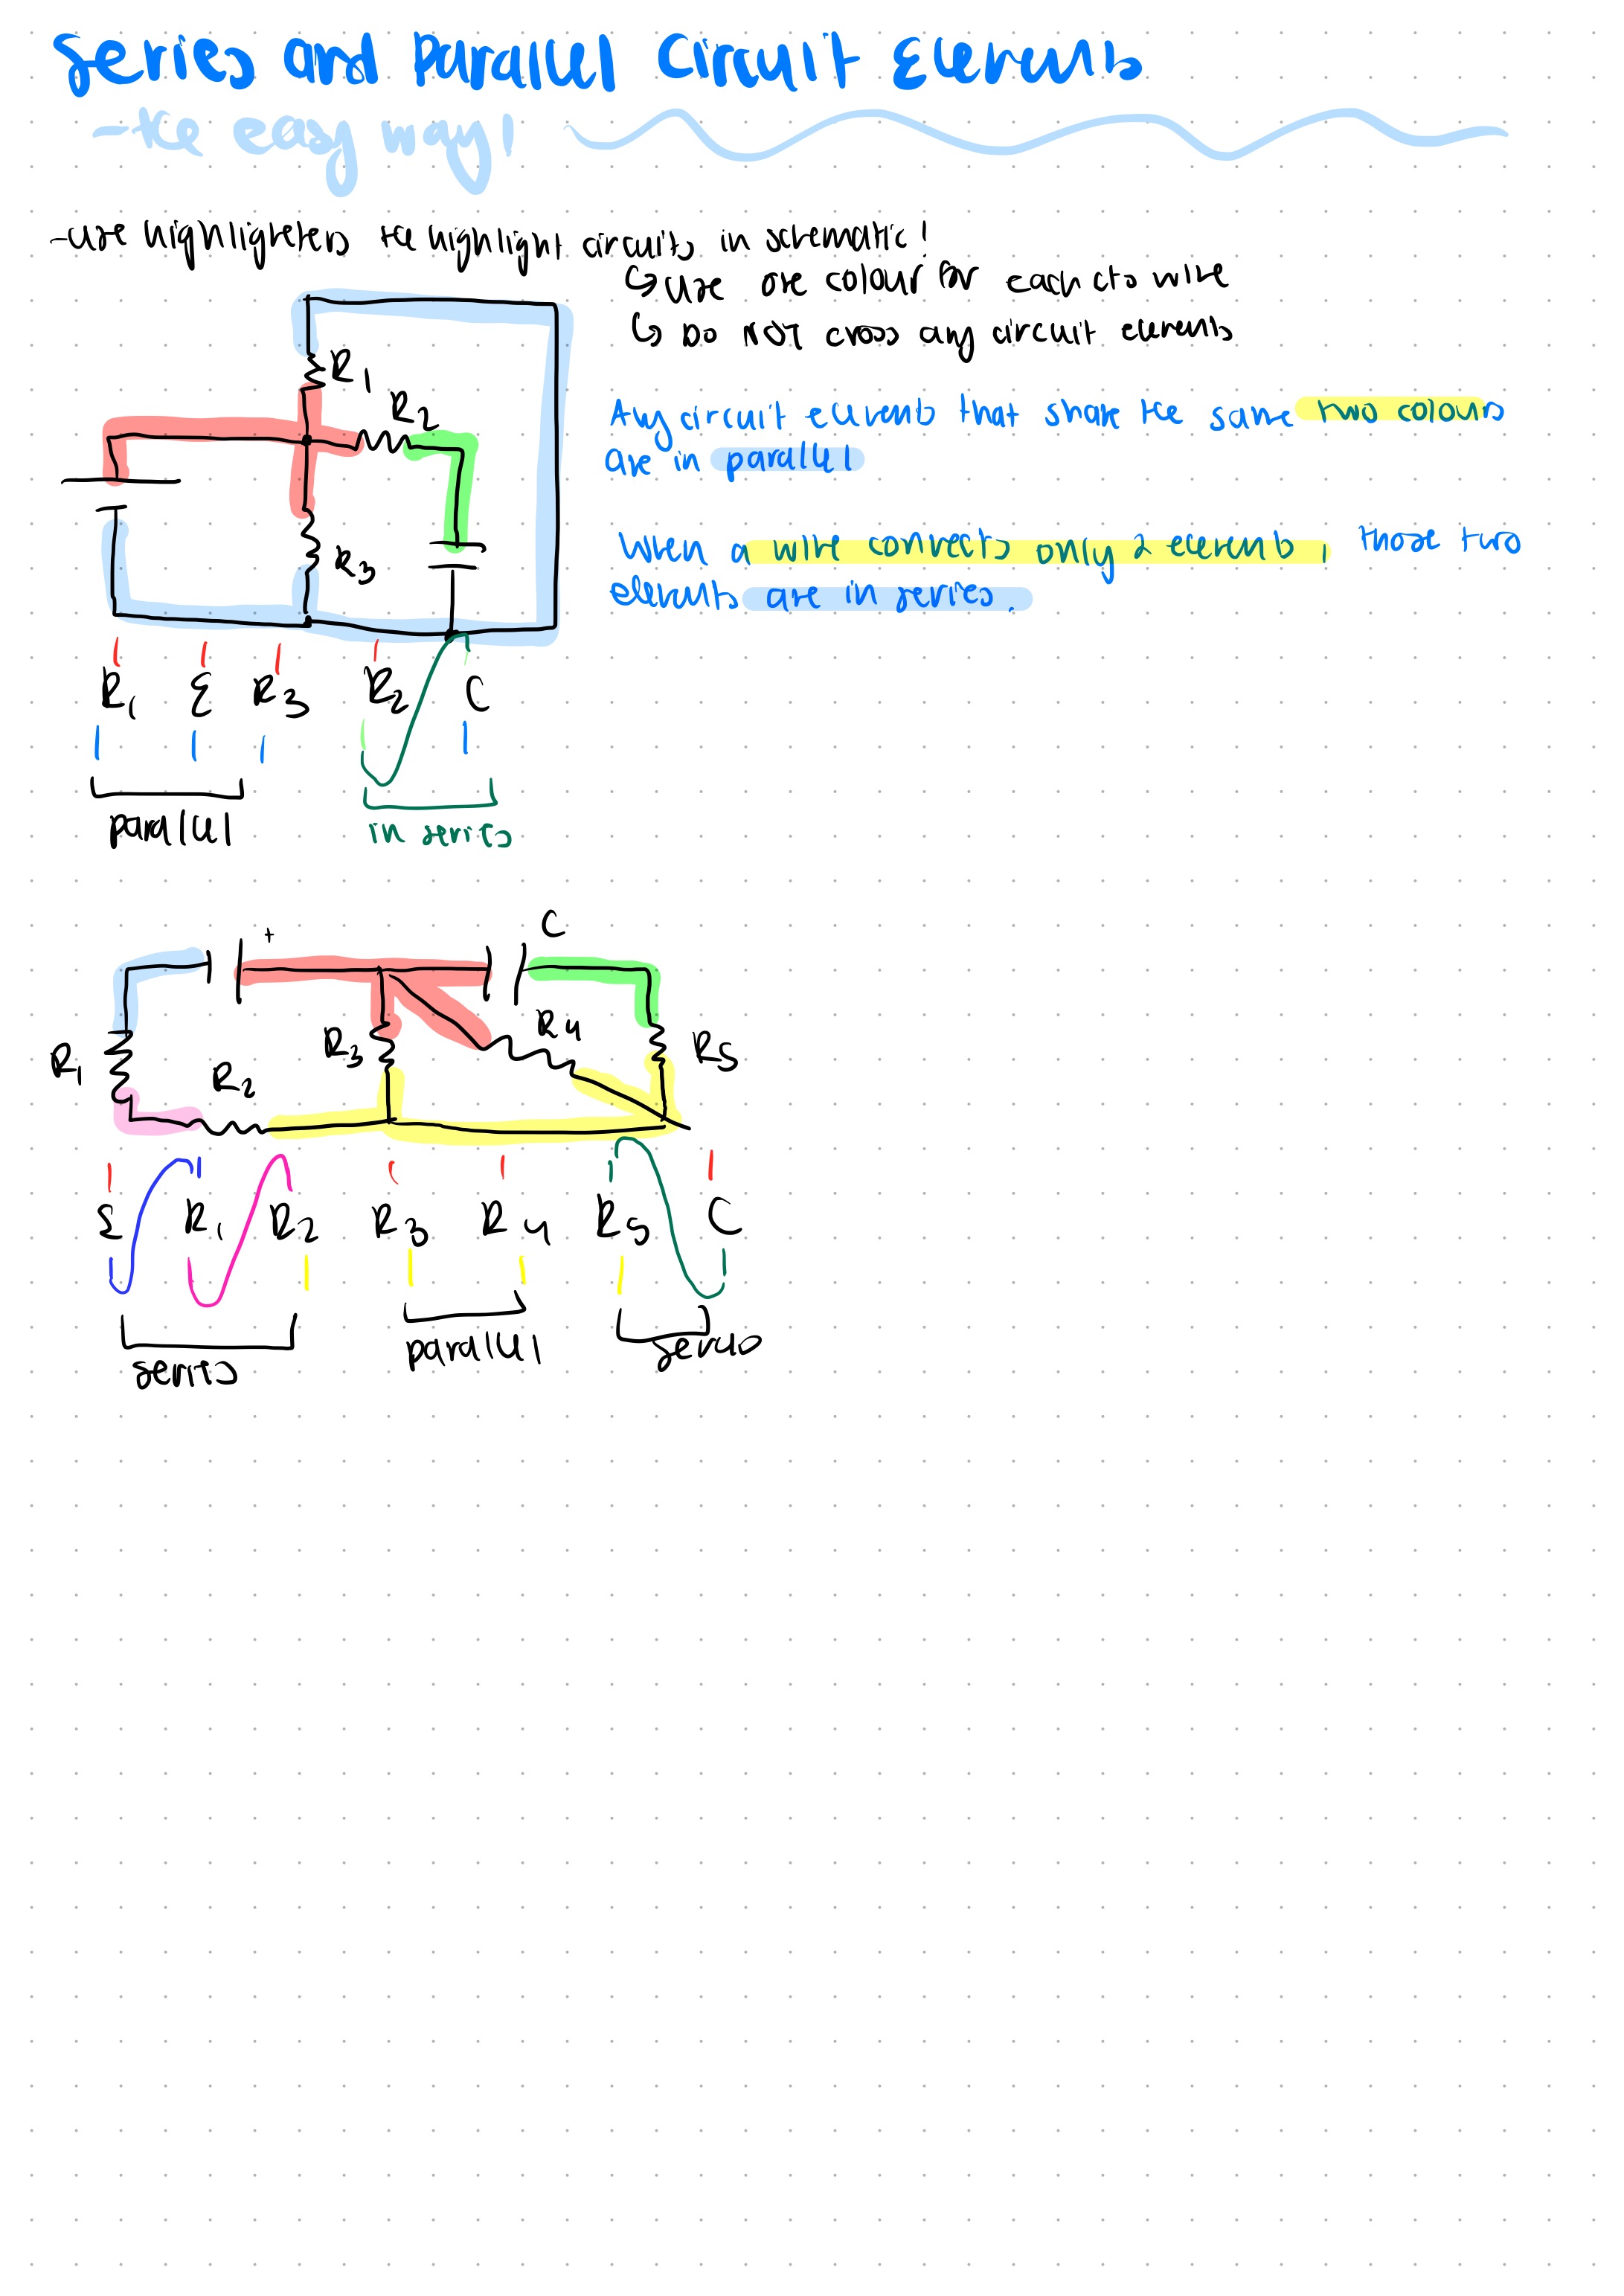 Series and Parallel Circuit Elements
- the easy way!
- use highlighters the highlight circuits in schematic!
↳ use one colour for each cts wire
↳ Do NOT cross any circuit elements
R1
R2
Any circuit elements that share the same two colours
are in parallel
R3
When a wire connects only 2 elements, those two
elements are in series.
R1 ε R3 R2 C
parallel
in series
+ C
R1 R2 R3 R4 R5
ε R1 R2 R3 R4 R5 C
series parallel series